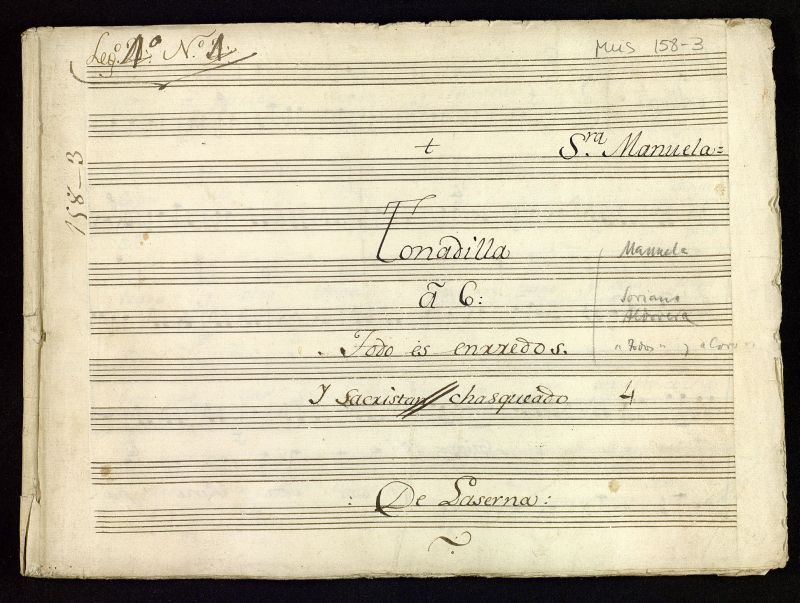 Leg.º 1º N.º 1.
MUS 158-3
158-3
+ S.ra Manuela=
Tonadilla
â 6:
Manuela
Soriano
Aldovera
"Todos" y "Coro"
. Todo ès enrredos.
Y Sacristan chasqueado 4
: De Laserna: